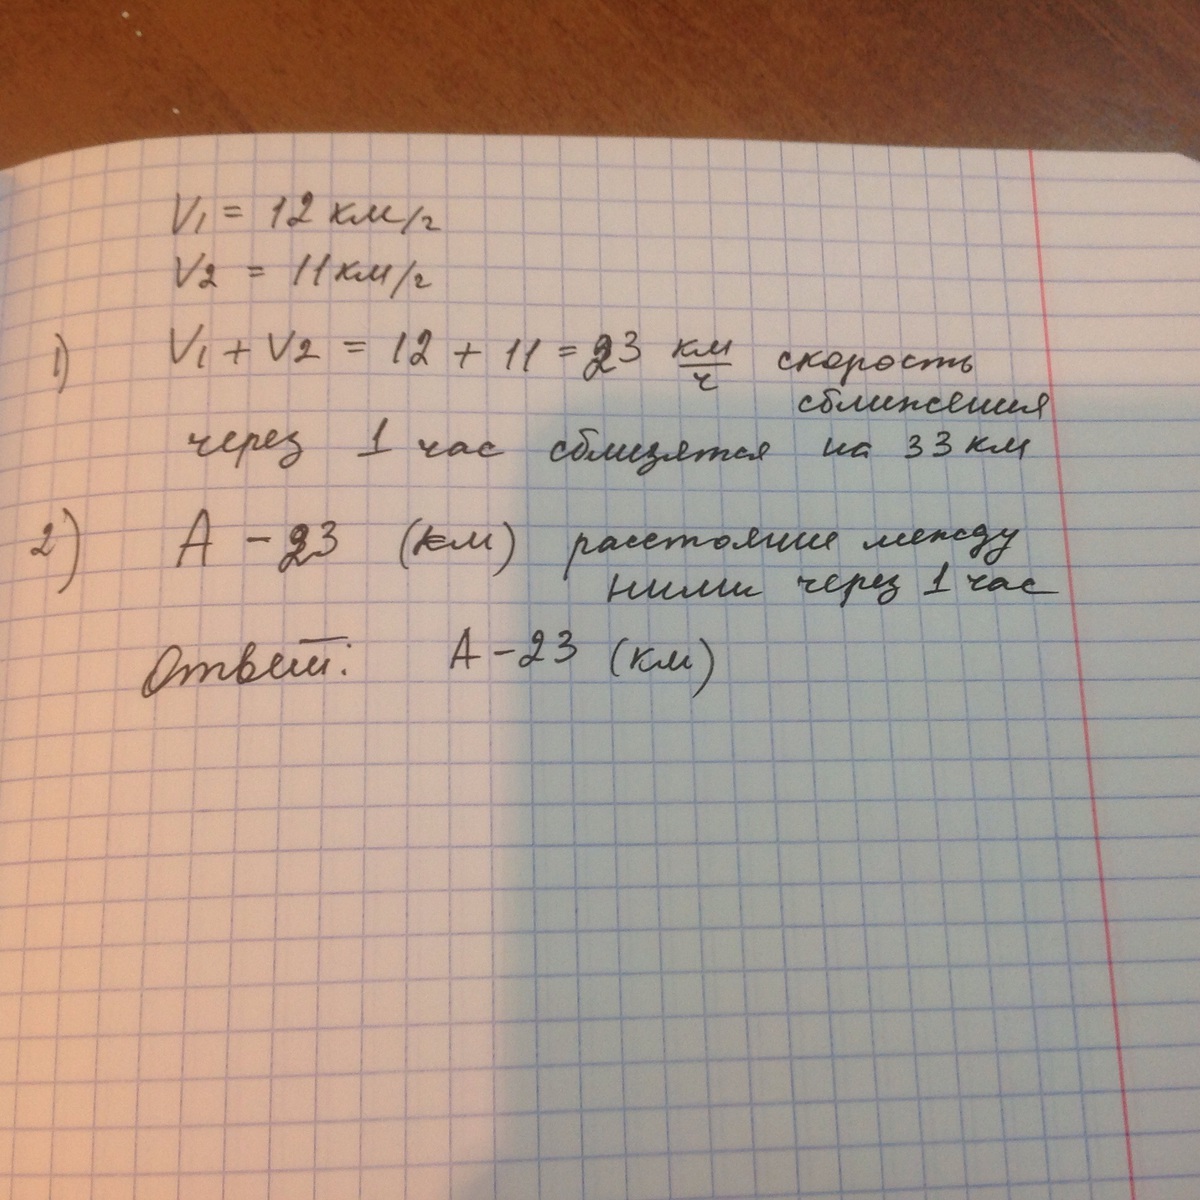 V1 = 12 км/ч
V2 = 11 км/ч
1) V1 + V2 = 12 + 11 = 23 км/ч скорость
сближения
через 1 час сблизятся на 33 км
2) А - 23 (км) расстояние между
ними через 1 час
Ответ: А - 23 (км)